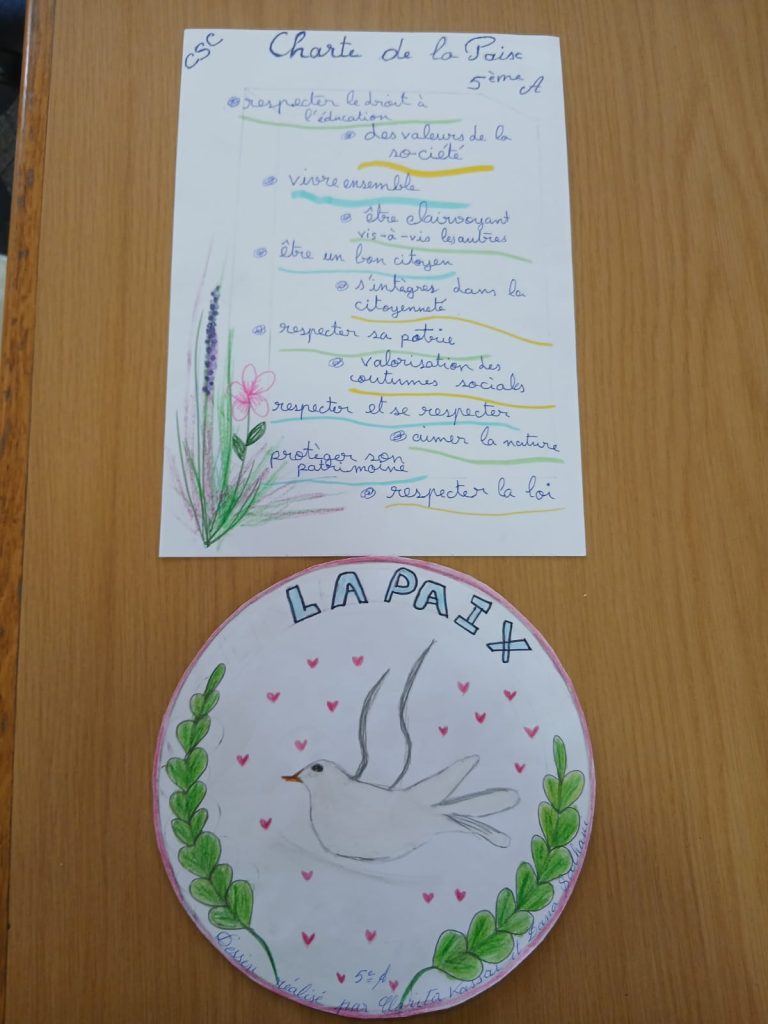 CSC
Charte de la Paix
5ème A
respecter le droit à
l'éducation
des valeurs de la
société
vivre ensemble
être clairvoyant
vis-à-vis les autres
être un bon citoyen
s'intègres dans la
citoyenneté
respecter sa patrie
valorisation des
coutumes sociales
respecter et se respecter
aimer la nature
protèger son
patrimoine
respecter la loi
LA PAIX
5e A
Dessin réalisé par Clarita Kassar et Dana